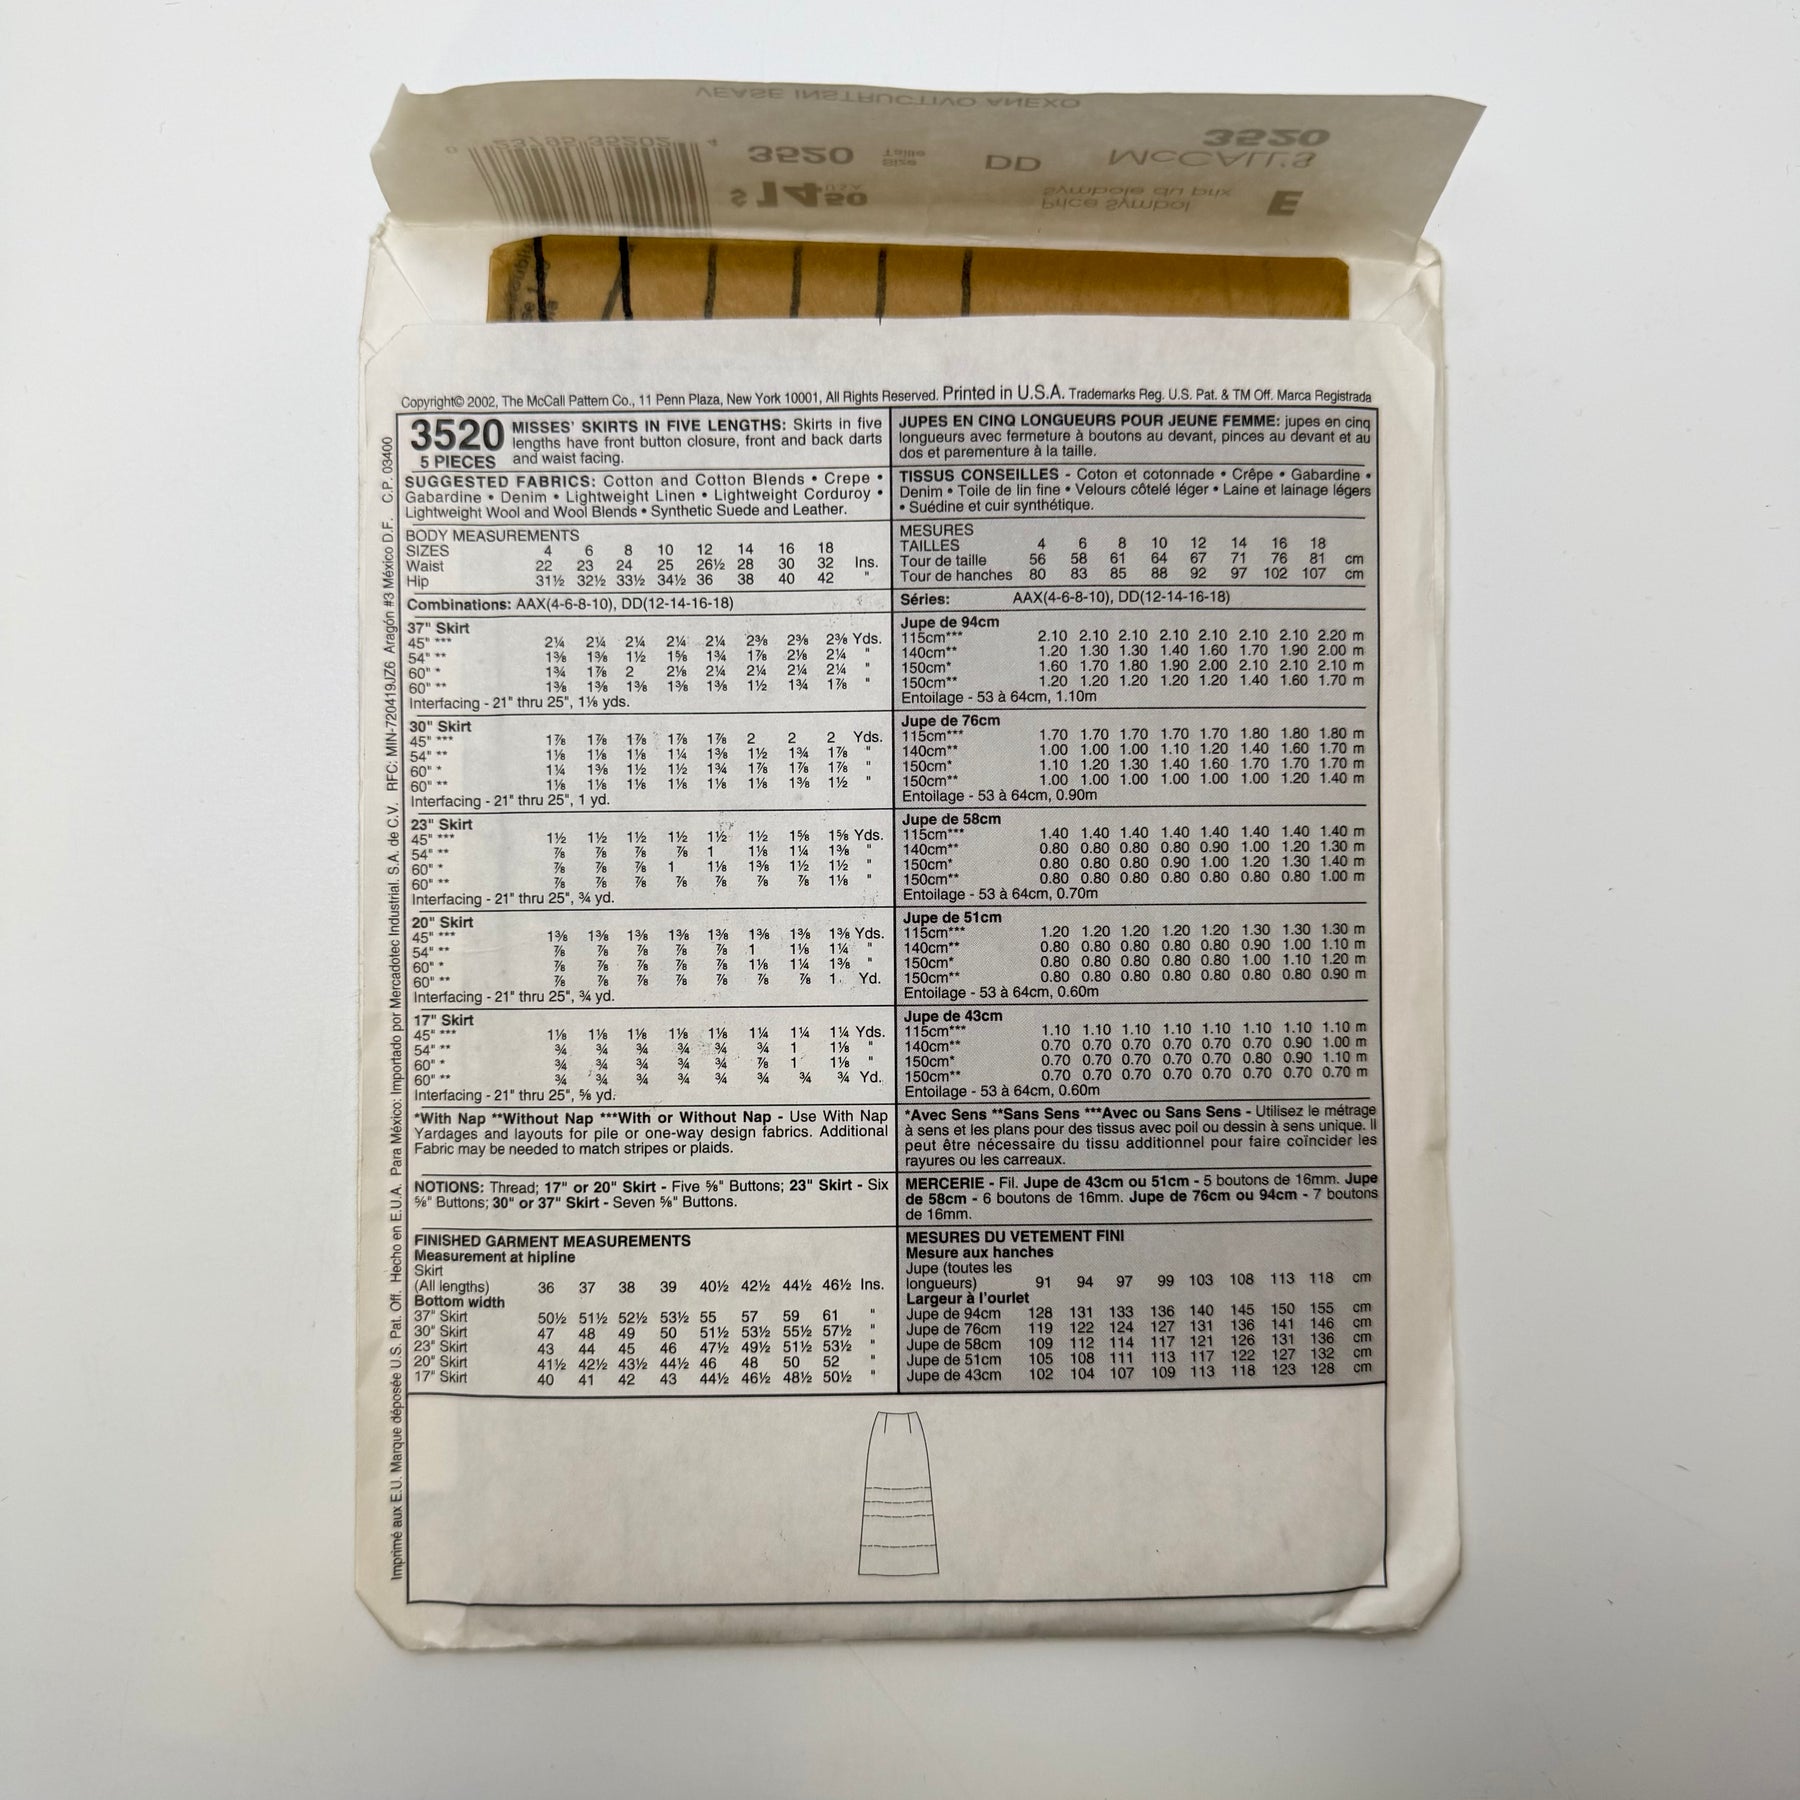 VEASE INSTRUCTIVO ANEXO
3520
0 23795 35202 4
3520 Taille Size DD McCALL'S
$14.50 U.S.A.
Symbole du prix
Price Symbol E
Copyright© 2002, The McCall Pattern Co., 11 Penn Plaza, New York 10001, All Rights Reserved. Printed in U.S.A. Trademarks Reg. U.S. Pat. & TM Off. Marca Registrada
Imprimé aux E.U. Marque déposée U.S. Pat. Off. Hecho en E.U.A. Para México: Importado por Mercadotec Industrial. S.A. de C.V. RFC: MIN-720419JZ6 Aragón #3 México D.F. C.P. 03400
3520
5 PIECES
MISSES' SKIRTS IN FIVE LENGTHS: Skirts in five
lengths have front button closure, front and back darts
and waist facing.
SUGGESTED FABRICS: Cotton and Cotton Blends • Crepe •
Gabardine • Denim • Lightweight Linen • Lightweight Corduroy •
Lightweight Wool and Wool Blends • Synthetic Suede and Leather.
BODY MEASUREMENTS
SIZES 4 6 8 10 12 14 16 18
Waist 22 23 24 25 26½ 28 30 32 Ins.
Hip 31½ 32½ 33½ 34½ 36 38 40 42 "
Combinations: AAX(4-6-8-10), DD(12-14-16-18)
37" Skirt
45" *** 2¼ 2¼ 2¼ 2¼ 2¼ 2⅜ 2⅜ 2⅜ Yds.
54" ** 1⅜ 1⅜ 1½ 1⅝ 1¾ 1⅞ 2⅛ 2¼ "
60" * 1¾ 1⅞ 2 2⅛ 2¼ 2¼ 2¼ 2¼ "
60" ** 1⅜ 1⅜ 1⅜ 1⅜ 1⅜ 1½ 1¾ 1⅞ "
Interfacing - 21" thru 25", 1⅛ yds.
30" Skirt
45" *** 1⅞ 1⅞ 1⅞ 1⅞ 1⅞ 2 2 2 Yds.
54" ** 1⅛ 1⅛ 1⅛ 1¼ 1⅜ 1½ 1¾ 1⅞ "
60" * 1¼ 1⅜ 1½ 1½ 1¾ 1⅞ 1⅞ 1⅞ "
60" ** 1⅛ 1⅛ 1⅛ 1⅛ 1⅛ 1⅛ 1⅜ 1½ "
Interfacing - 21" thru 25", 1 yd.
23" Skirt
45" *** 1½ 1½ 1½ 1½ 1½ 1½ 1⅝ 1⅝ Yds.
54" ** ⅞ ⅞ ⅞ ⅞ 1 1⅛ 1¼ 1⅜ "
60" * ⅞ ⅞ ⅞ 1 1⅛ 1⅜ 1½ 1½ "
60" ** ⅞ ⅞ ⅞ ⅞ ⅞ ⅞ ⅞ 1⅛ "
Interfacing - 21" thru 25", ¾ yd.
20" Skirt
45" *** 1⅜ 1⅜ 1⅜ 1⅜ 1⅜ 1⅜ 1⅜ 1⅜ Yds.
54" ** ⅞ ⅞ ⅞ ⅞ ⅞ 1 1⅛ 1¼ "
60" * ⅞ ⅞ ⅞ ⅞ ⅞ 1⅛ 1¼ 1⅜ "
60" ** ⅞ ⅞ ⅞ ⅞ ⅞ ⅞ ⅞ 1 Yd.
Interfacing - 21" thru 25", ¾ yd.
17" Skirt
45" *** 1⅛ 1⅛ 1⅛ 1⅛ 1⅛ 1¼ 1¼ 1¼ Yds.
54" ** ¾ ¾ ¾ ¾ ¾ ¾ 1 1⅛ "
60" * ¾ ¾ ¾ ¾ ¾ ⅞ 1 1⅛ "
60" ** ¾ ¾ ¾ ¾ ¾ ¾ ¾ ¾ Yd.
Interfacing - 21" thru 25", ⅝ yd.
*With Nap **Without Nap ***With or Without Nap - Use With Nap
Yardages and layouts for pile or one-way design fabrics. Additional
Fabric may be needed to match stripes or plaids.
NOTIONS: Thread; 17" or 20" Skirt - Five ⅝" Buttons; 23" Skirt - Six
⅝" Buttons; 30" or 37" Skirt - Seven ⅝" Buttons.
FINISHED GARMENT MEASUREMENTS
Measurement at hipline
Skirt
(All lengths) 36 37 38 39 40½ 42½ 44½ 46½ Ins.
Bottom width
37" Skirt 50½ 51½ 52½ 53½ 55 57 59 61 "
30" Skirt 47 48 49 50 51½ 53½ 55½ 57½ "
23" Skirt 43 44 45 46 47½ 49½ 51½ 53½ "
20" Skirt 41½ 42½ 43½ 44½ 46 48 50 52 "
17" Skirt 40 41 42 43 44½ 46½ 48½ 50½ "
JUPES EN CINQ LONGUEURS POUR JEUNE FEMME: jupes en cinq
longueurs avec fermeture à boutons au devant, pinces au devant et au
dos et parementure à la taille.
TISSUS CONSEILLES - Coton et cotonnade • Crêpe • Gabardine •
Denim • Toile de lin fine • Velours côtelé léger • Laine et lainage légers
• Suédine et cuir synthétique.
MESURES
TAILLES 4 6 8 10 12 14 16 18
Tour de taille 56 58 61 64 67 71 76 81 cm
Tour de hanches 80 83 85 88 92 97 102 107 cm
Séries: AAX(4-6-8-10), DD(12-14-16-18)
Jupe de 94cm
115cm*** 2.10 2.10 2.10 2.10 2.10 2.10 2.10 2.20 m
140cm** 1.20 1.30 1.30 1.40 1.60 1.70 1.90 2.00 m
150cm* 1.60 1.70 1.80 1.90 2.00 2.10 2.10 2.10 m
150cm** 1.20 1.20 1.20 1.20 1.20 1.40 1.60 1.70 m
Entoilage - 53 à 64cm, 1.10m
Jupe de 76cm
115cm*** 1.70 1.70 1.70 1.70 1.70 1.80 1.80 1.80 m
140cm** 1.00 1.00 1.00 1.10 1.20 1.40 1.60 1.70 m
150cm* 1.10 1.20 1.30 1.40 1.60 1.70 1.70 1.70 m
150cm** 1.00 1.00 1.00 1.00 1.00 1.00 1.20 1.40 m
Entoilage - 53 à 64cm, 0.90m
Jupe de 58cm
115cm*** 1.40 1.40 1.40 1.40 1.40 1.40 1.40 1.40 m
140cm** 0.80 0.80 0.80 0.80 0.90 1.00 1.20 1.30 m
150cm* 0.80 0.80 0.80 0.90 1.00 1.20 1.30 1.40 m
150cm** 0.80 0.80 0.80 0.80 0.80 0.80 0.80 1.00 m
Entoilage - 53 à 64cm, 0.70m
Jupe de 51cm
115cm*** 1.20 1.20 1.20 1.20 1.20 1.30 1.30 1.30 m
140cm** 0.80 0.80 0.80 0.80 0.80 0.90 1.00 1.10 m
150cm* 0.80 0.80 0.80 0.80 0.80 1.00 1.10 1.20 m
150cm** 0.80 0.80 0.80 0.80 0.80 0.80 0.80 0.90 m
Entoilage - 53 à 64cm, 0.60m
Jupe de 43cm
115cm*** 1.10 1.10 1.10 1.10 1.10 1.10 1.10 1.10 m
140cm** 0.70 0.70 0.70 0.70 0.70 0.70 0.90 1.00 m
150cm* 0.70 0.70 0.70 0.70 0.70 0.80 0.90 1.10 m
150cm** 0.70 0.70 0.70 0.70 0.70 0.70 0.70 0.70 m
Entoilage - 53 à 64cm, 0.60m
*Avec Sens **Sans Sens ***Avec ou Sans Sens - Utilisez le métrage
à sens et les plans pour des tissus avec poil ou dessin à sens unique. Il
peut être nécessaire du tissu additionnel pour faire coïncider les
rayures ou les carreaux.
MERCERIE - Fil. Jupe de 43cm ou 51cm - 5 boutons de 16mm. Jupe
de 58cm - 6 boutons de 16mm. Jupe de 76cm ou 94cm - 7 boutons
de 16mm.
MESURES DU VETEMENT FINI
Mesure aux hanches
Jupe (toutes les
longueurs) 91 94 97 99 103 108 113 118 cm
Largeur à l'ourlet
Jupe de 94cm 128 131 133 136 140 145 150 155 cm
Jupe de 76cm 119 122 124 127 131 136 141 146 cm
Jupe de 58cm 109 112 114 117 121 126 131 136 cm
Jupe de 51cm 105 108 111 113 117 122 127 132 cm
Jupe de 43cm 102 104 107 109 113 118 123 128 cm